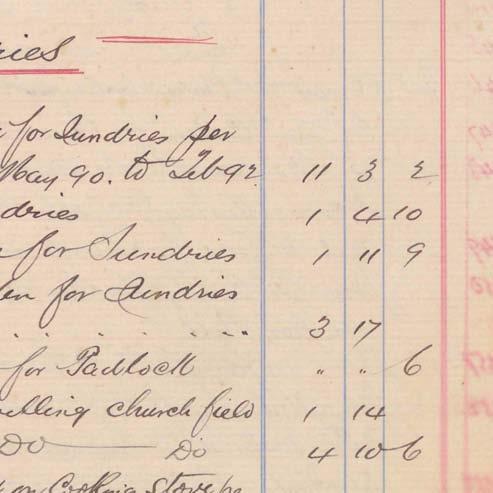 for Sundries per
May 90. to Feb 92 11 3 2
dries 1 4 10
for Sundries 1 11 9
for Sundries
. . . . . . . . 3 17
for Padlock " " 6
church field 1 14
Do Do 4 10 6
on Cooking Stove